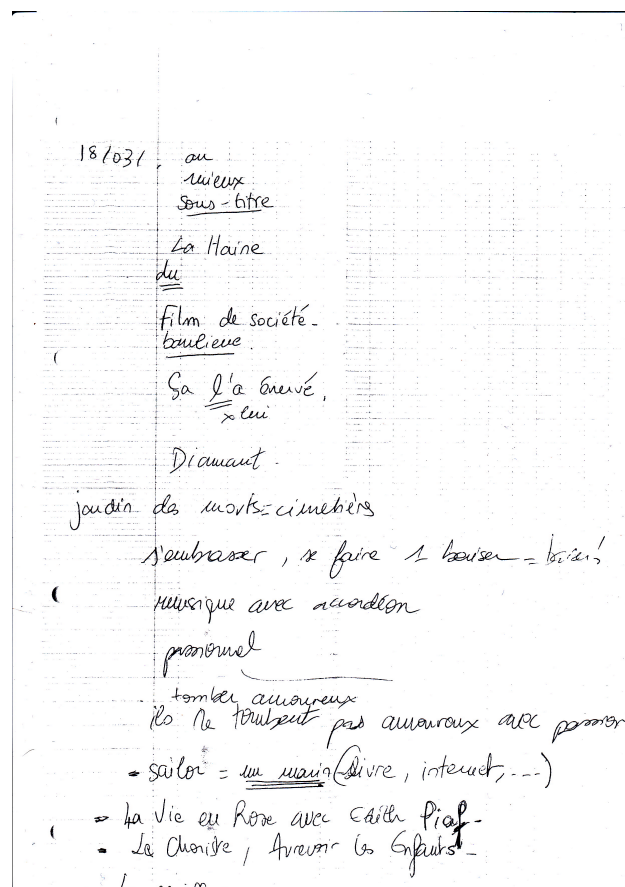 18/03/. au
mieux
sous-titre
La Haine
du
film de société-
banlieue.
Ça l'a énervé,
x lui
Diamant.
jardin des morts=cimetières
s'embrasser, se faire 1 baiser =
musique avec accordéon
passionnel
tomber amoureux
ils ne tombent pas amouroux avec passion
- sailor = un marin (livre, internet, ...)
- La Vie en Rose avec Edith Piaf-
- Le Choriste, Aurevoir les Enfants-